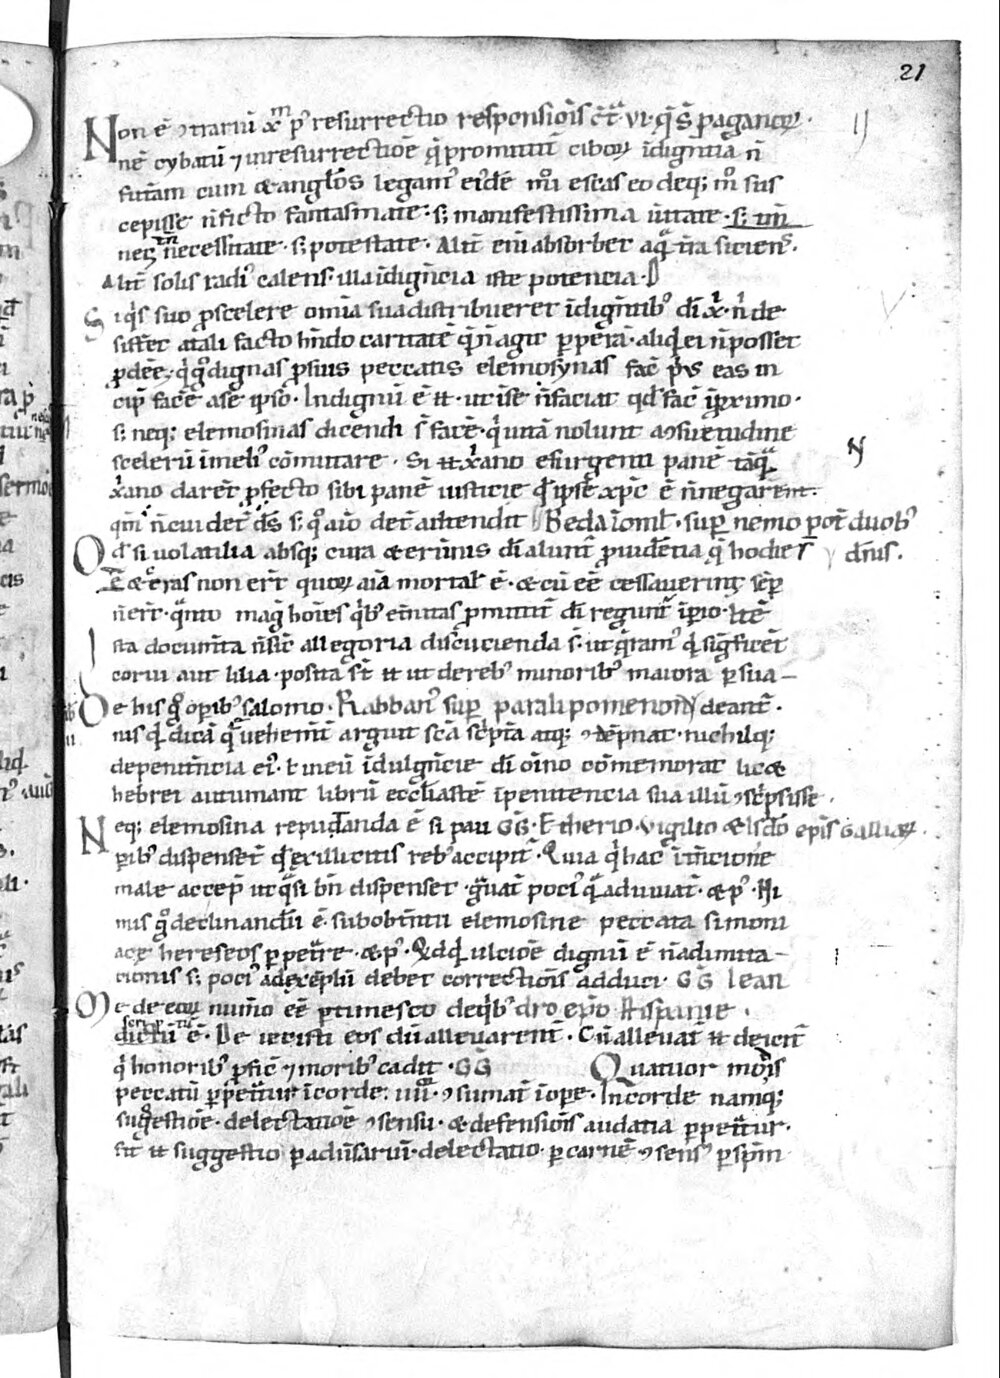 21
Non ē ɔtrariū xp̄m p' resurrectio responsiōis c̄t̄ᵃ vi q̄s̄ paganoꝝ.
nē cybatū ⁊ in resurrectiōe q̄ promittit̄ ciboꝝ īdigntia n̄
futam cum & angłos legam' eidē m̊i escas eo deq; m̊ sūs
cepisse n̄ ficto fantasmate · s; manifestissima ūitate · s; tn̄
nec necessitate · s; potestate · Alit̄ eni absorber aq̄ t̄ra siciens.
Alit̄ solis radi' calens · illa īdigncia iste potencia ·
Siq̄s suo p scelere omīa sua distribueret īdigntib' di x̄ · n̄ de
sisteret a tali facto hn̄do caritatē q̄ n̄ agit perperā · aliq̄ ei n̄ posset
pdēe, q̄ q̊ dignas prsius peccatis elemosynas facē p̄us eas in
cip̄ facē a se ipso · Indignū ē ꝉꝉ · ut ī se n̄ faciat qd̄ fac̄ ī pximo ·
s; neq; elemosinas dicendi s̄ facē · q̄ uitā nolunt ɔsuetudine
scelerū ī meli' cōmutare · Si ꝉꝉ x̄ano esurgenti panē tāq̄ᵃ
x̄ano daret pfecto sibi panē iusticie q̄ ipse xp̄c ē n̄ negarent.
qm̄ n̄ cui det' d̄s s; q̊ aīo det' attendit Beda ī omł · sup nemo pot̄ duob'
Qd si volatilia absq; cura & erūnis di alunt̄ puidentia q̄ hodie s̄ dn̄is.
& cras non ert̄ quoꝝ aīa mortał ē · & cū eē cessaverint̄ semp
n̄ ert̄ · q̄nto mag̊ hoīes q̄b' et̄nitas pmittit̄ di regunt̄ ipio · Itē
sta docum̄ta n̄ sic̄ allegoria discucienda s̄ · ut q̄ram' q̄ signficēt
corui aut lilia · posita s̄t ꝉꝉ ut de reb' minorib' maiora p sua–
De his q̊ opib' salomo · Rabban' sup paralipomenon deant̄.
nis q̄ dicā q̄ uehem̄t arguit sc̄a sc̄pta atq; ɔdēpnat nichilq;
de penitn̄cia ei' t̄ ueniā īdulgn̄cie di oīno cōmemorat lic&
hebrei autumant librū eccłiastē ī penitencia sua illū ɔscpsisse.
Neq; elemosina repudianda ē si pau G̅G̅ · Etherio · vigilio & ełsdō ep̄is galliaꝝ.
pib' dispenset̄ q̄ ex illicitis reb' accipit̄ · Quia q̄ hac īt̄ncione
male accep̄ ut q̄si bn̄ dispenset · g̊uat̄ poci' q̄ adiuuat̄ · & p' · Ni
mis q̊ declinandū ē · sub obtn̄tu elemosine peccata simoni
ace hereseos ppetre · & p' · Qdq̄d ulciōe dignū ē n̄ ad imita–
cionis s; poci' ad exēplū debet correctiōis adduci · G̅G̅ Lean
Me de eoꝝ num̄o eē ptimesco de q̄b' dro ep̄o hispanie ·
script
dictū ē · Deiecisti eos dū alleuarent̄ · Cū alleuat̄ ꝉꝉ deicit̄
q̄ honorib' pfic̄ ⁊ morib' cadit · G̅G̅ Quatuor mōis
peccatū ppetrat̄ īcorde: iiii · ɔsumat̄ ī ope · In corde namq;
suggestiōe · delectatiōe ɔsensu · & defensiōis audatia ppetrat̄ur.
fit ꝉꝉ suggestio p aduersariū · delectatio · p carnē ɔsens' p spm̄